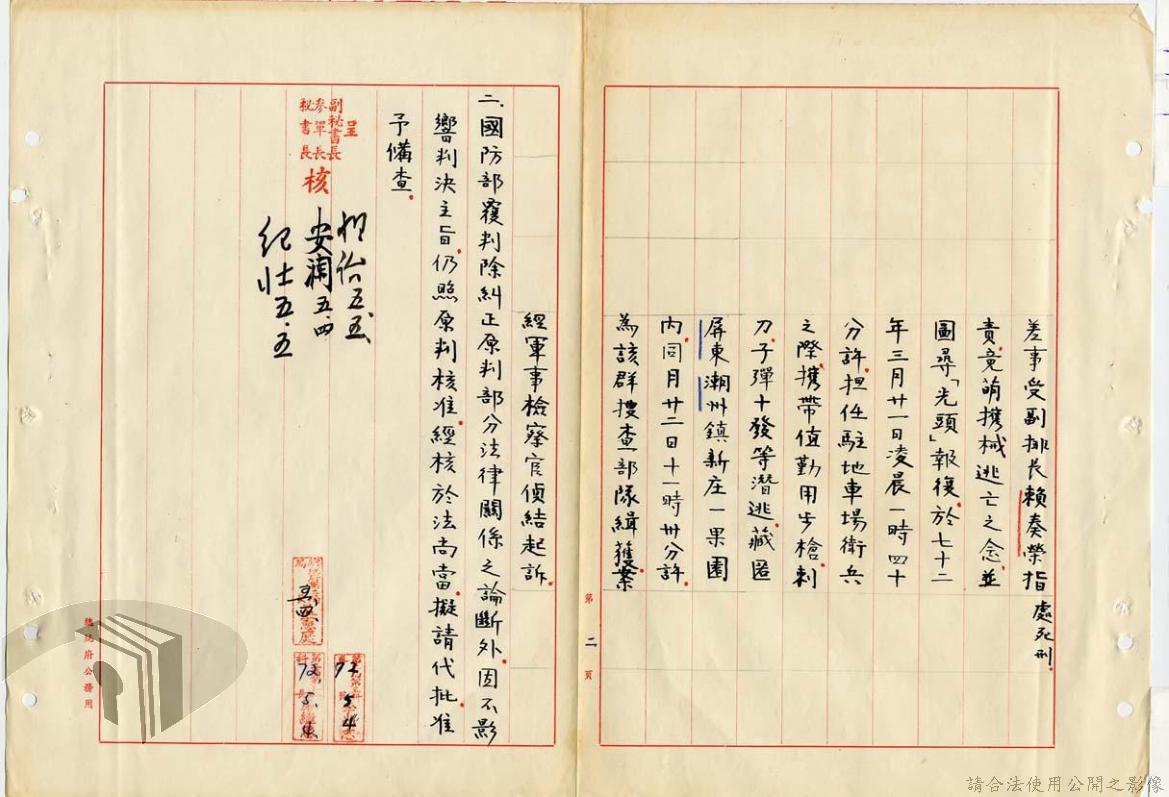 差事受副排長賴奏榮指
責,竟萌携械逃亡之念,並
圖尋「光頭」報復,於七十二
年三月廿一日凌晨一時四十
分許,担任駐地車場衛兵
之際,携帶值勤用步槍、刺
刀、子彈十發等潛逃,藏匿
屏東潮州鎮新庄一果園
內,同月廿二日十一時卅分許,
為該群搜查部隊緝獲,案
經軍事檢察官偵結起訴.
處死刑.
第二頁
二.國防部覆判除糾正原判部分法律關係之論斷外,因不影
響判決主旨,仍照原判核准,經核於法尚當,擬請代批:准
予備查.
呈
副秘書長
參軍長
秘書長
核
五.五
安瀾五.四
紀壯五.五
總統府公務用
請合法使用公開之影像